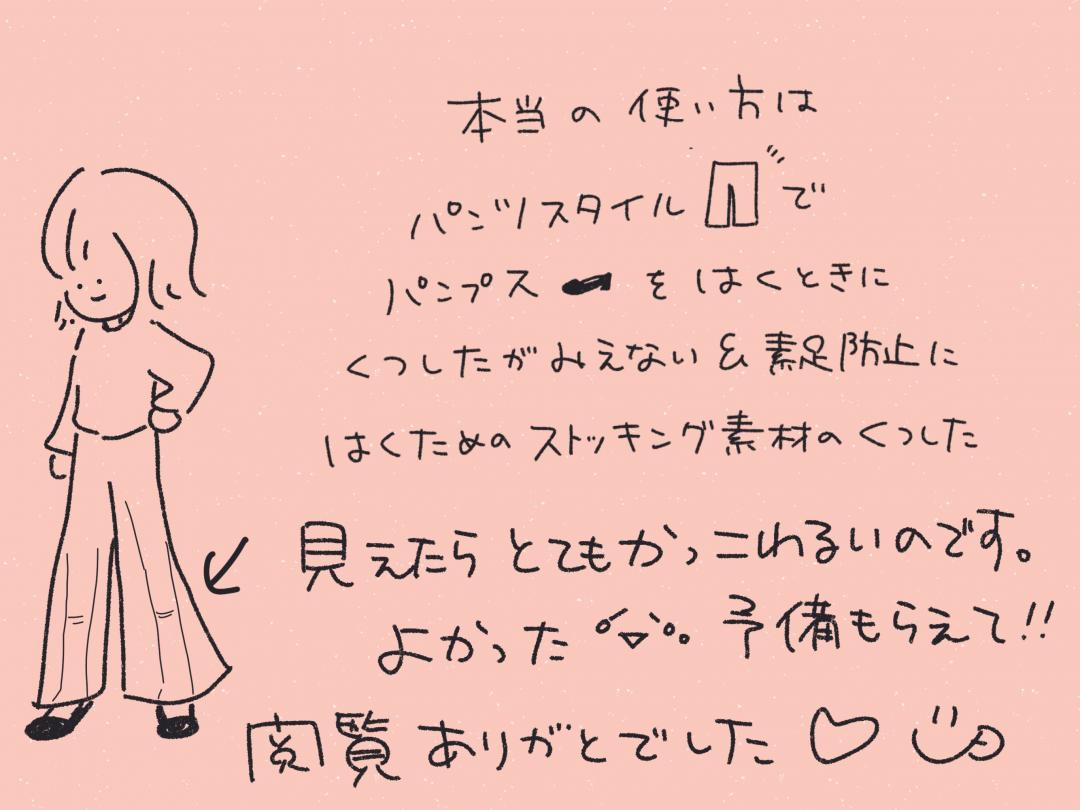 本当の使い方は
パンツスタイルで
パンプスをはくときに
くつしたがみえない & 素足防止に
はくための ストッキング素材の くつした
見えたら とてもかっこわるいのです。
よかった 予備もらえて!!
閲覧ありがとでした